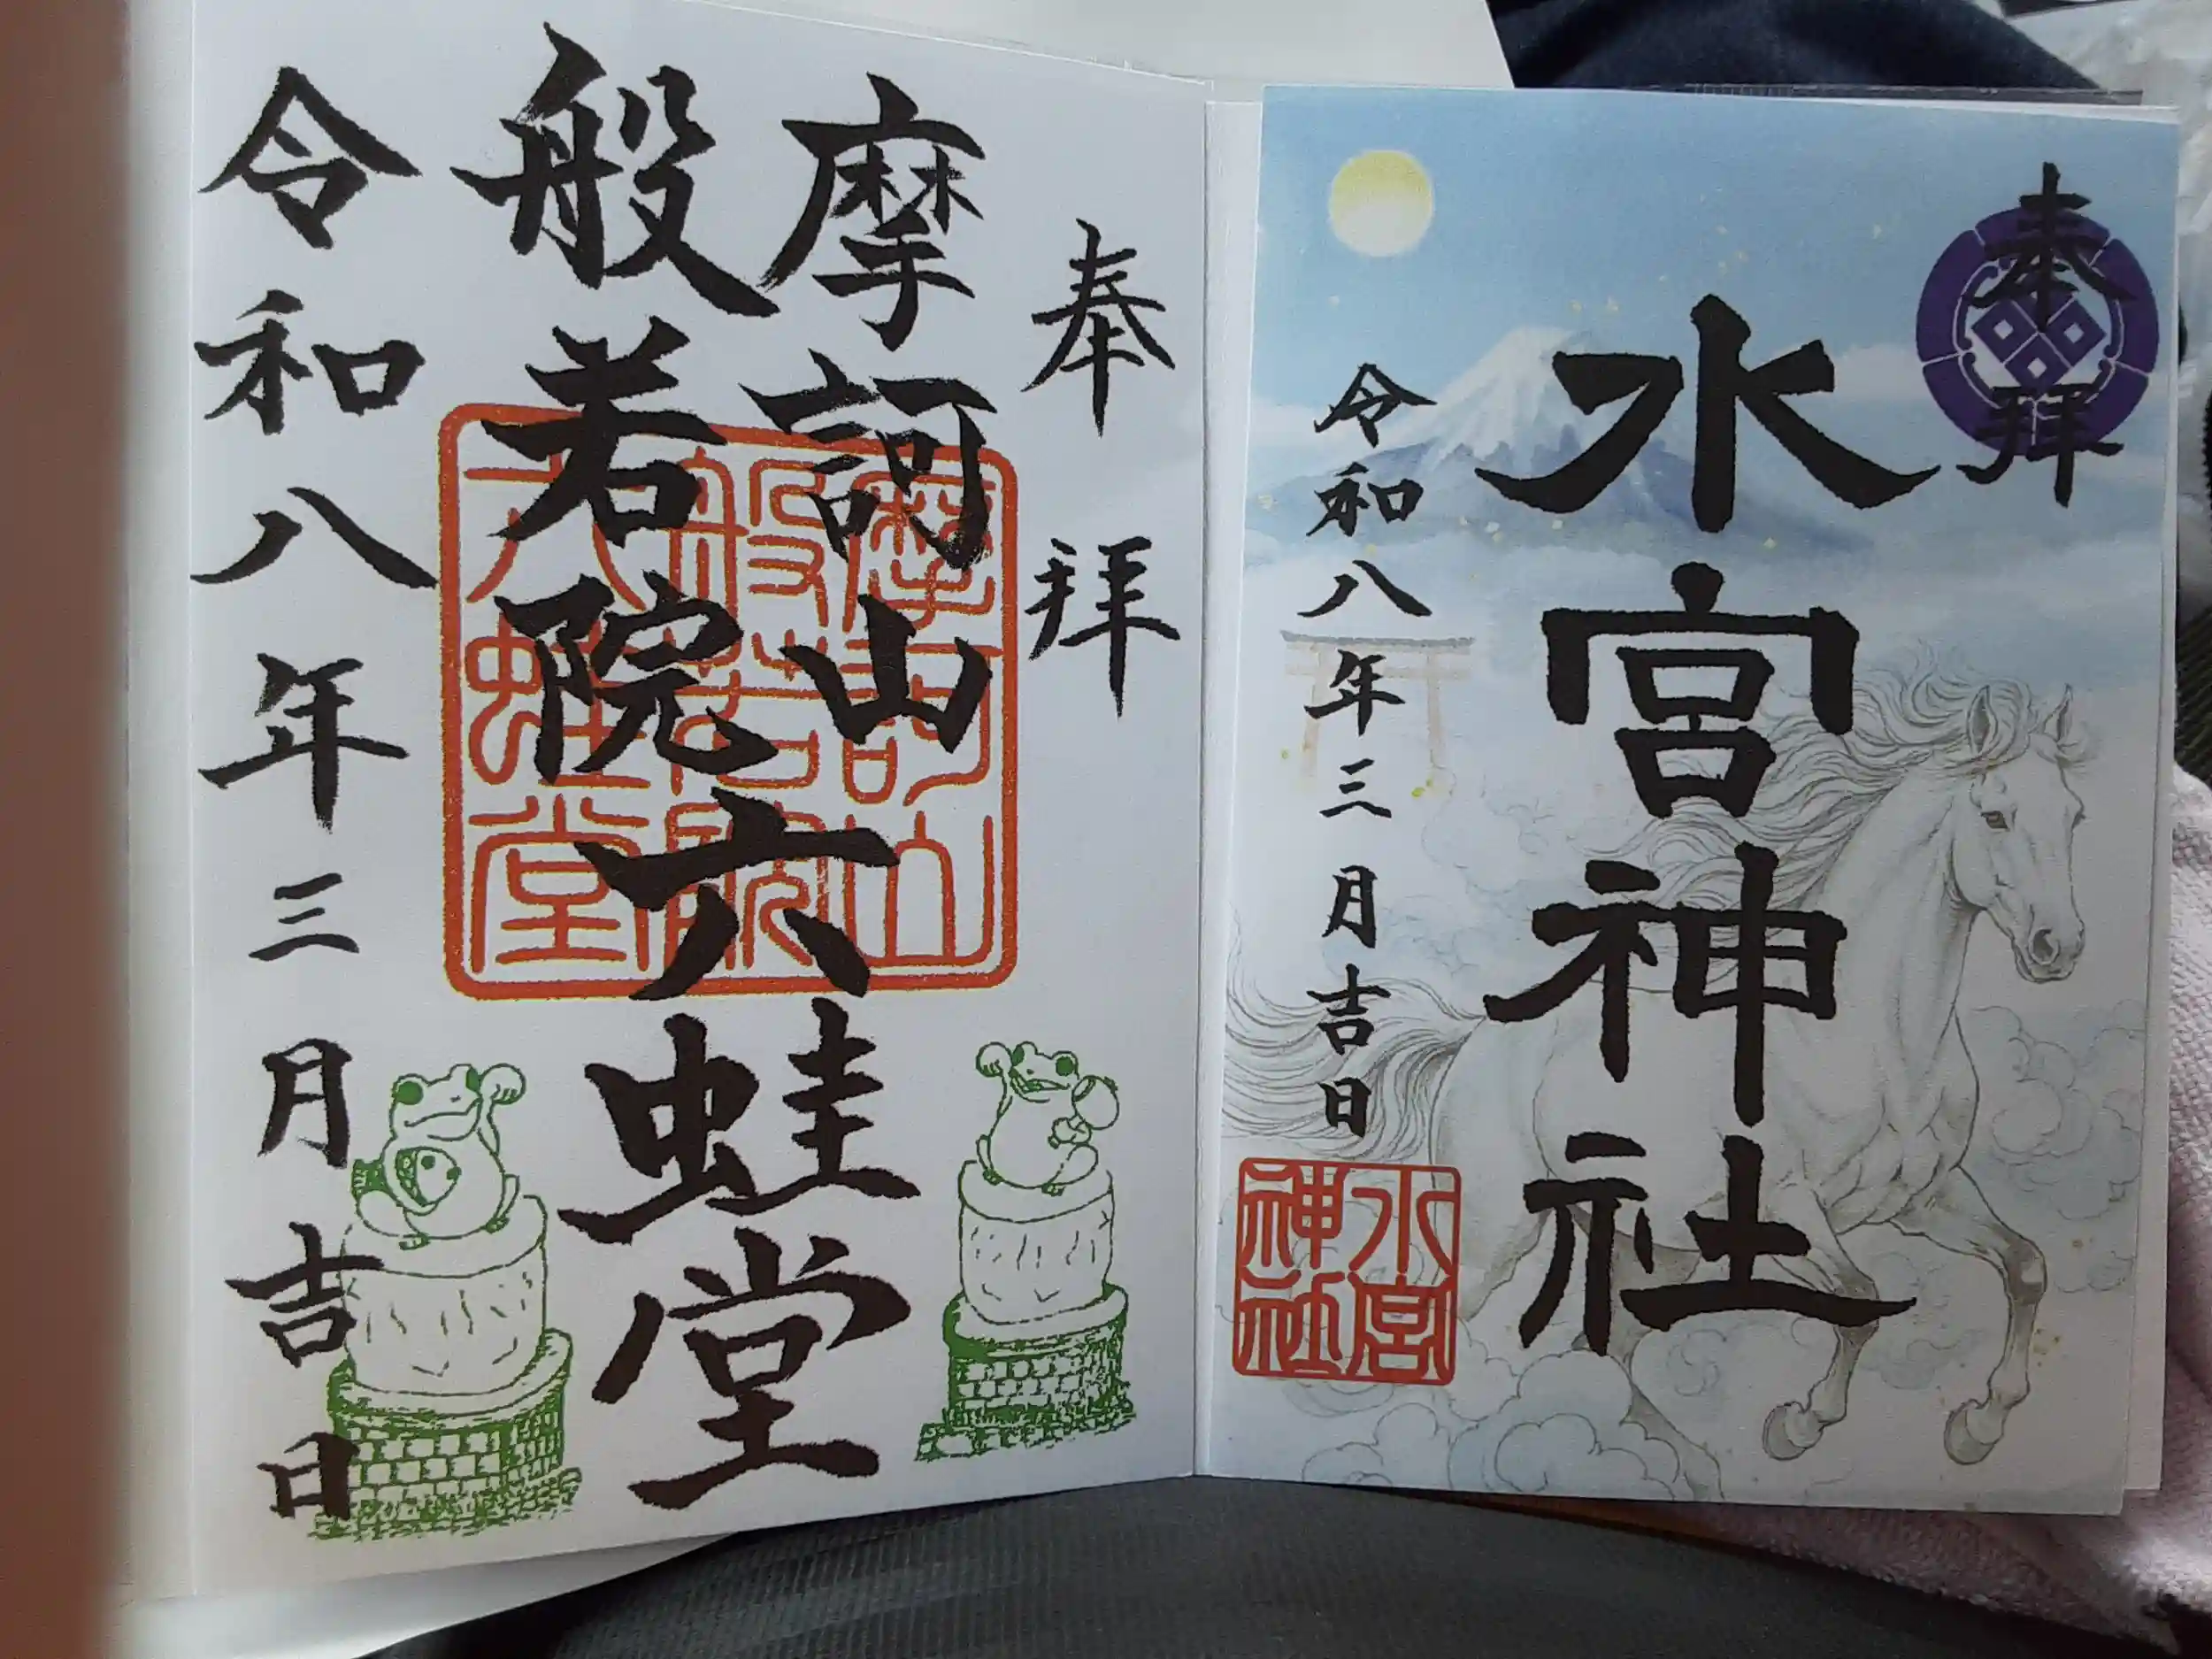 奉拝
水宮神社
令和八年三月吉日
水宮
神社
奉拝
摩訶山
般若院六蛙堂
令和八年三月吉日
摩訶山
般若院
六蛙堂